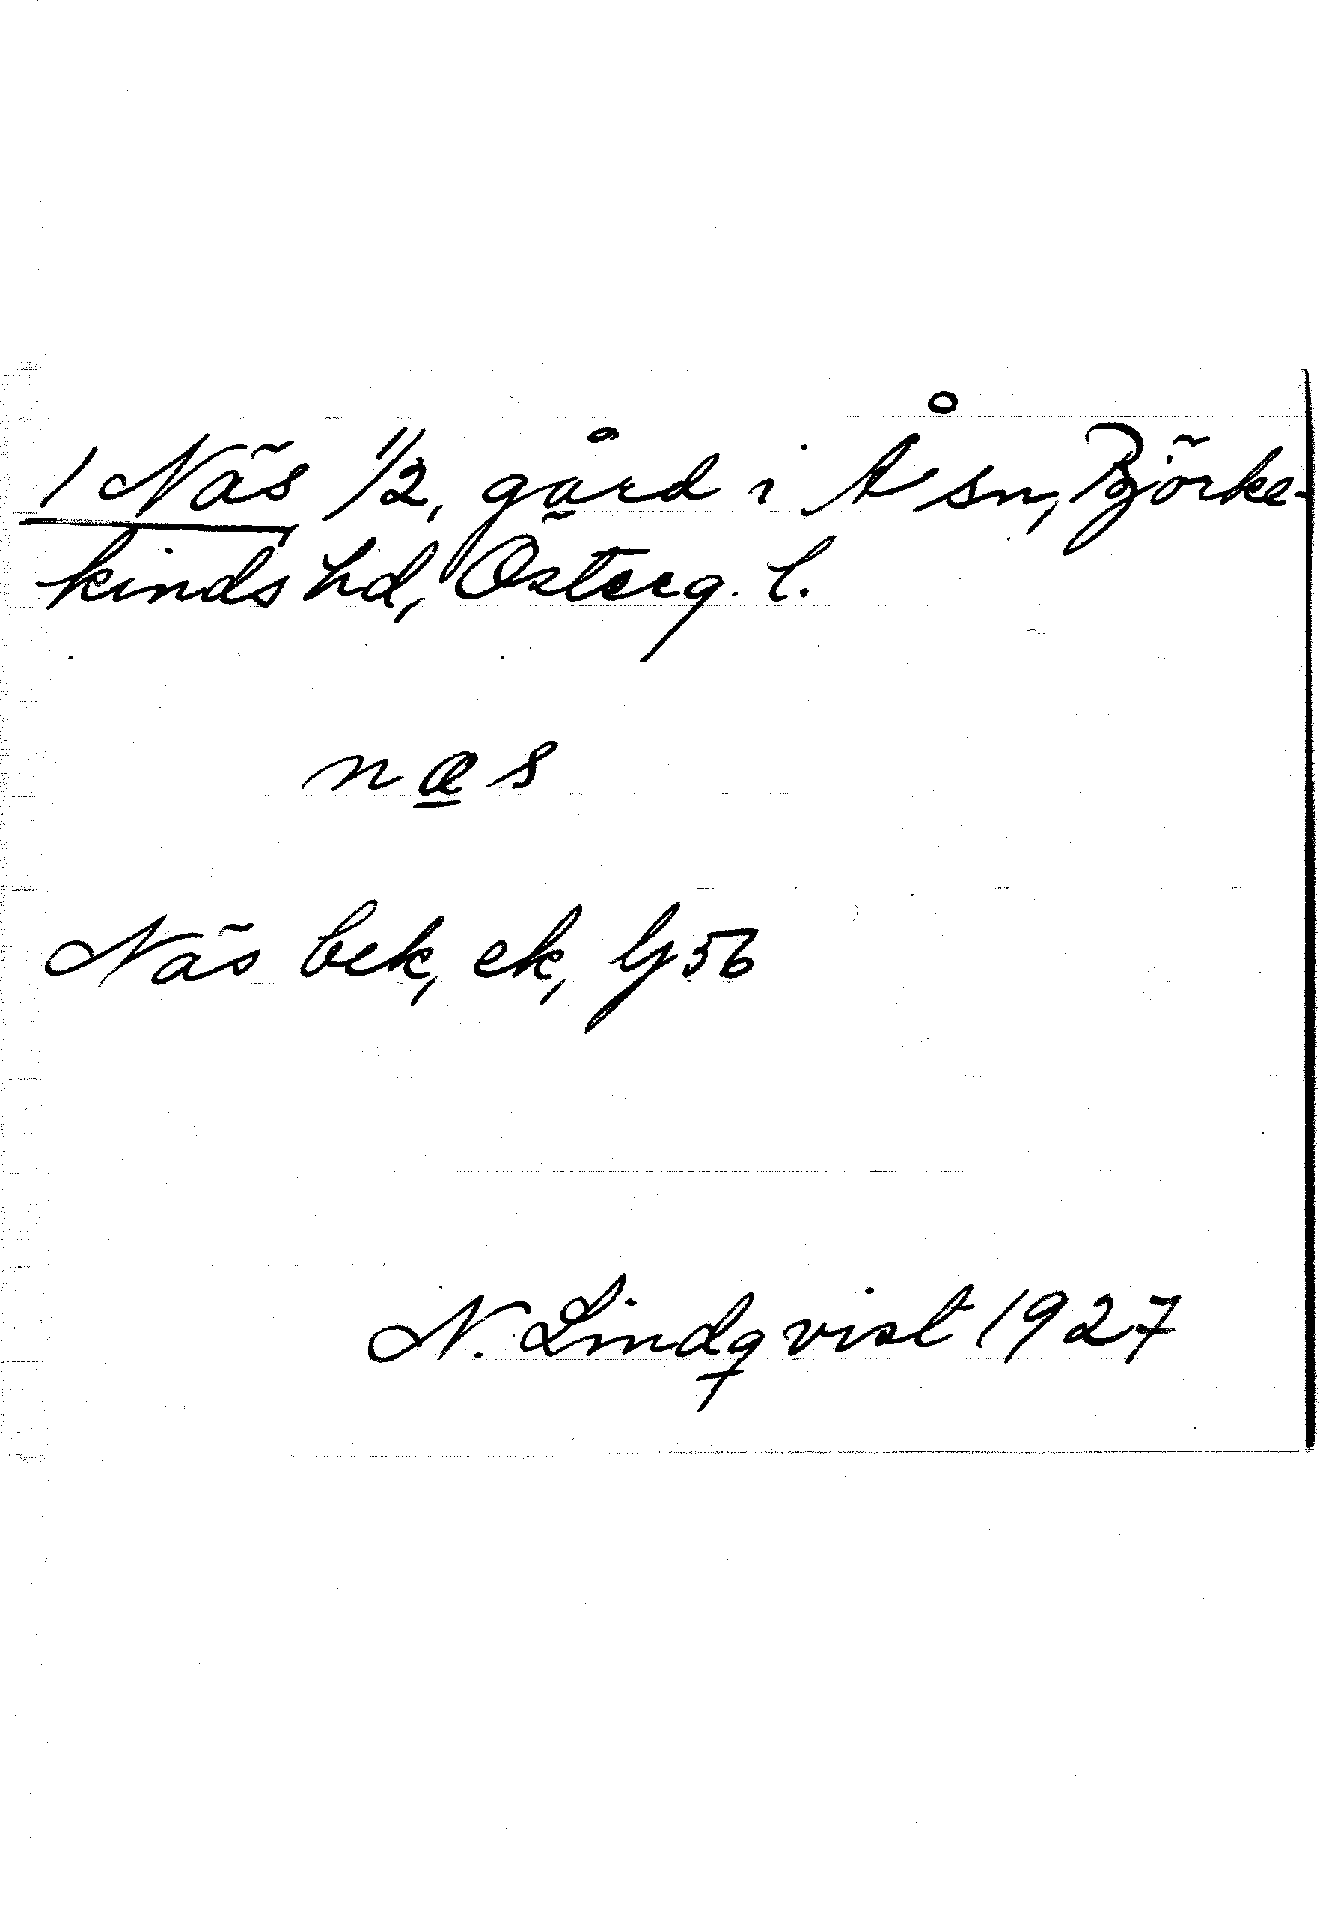 1 Näs 1/2, gård i Å sn, Björke-
kinds hd, Österg. l.
næs
Näs bek, ek, Gj 56
N. Lindqvist 1927